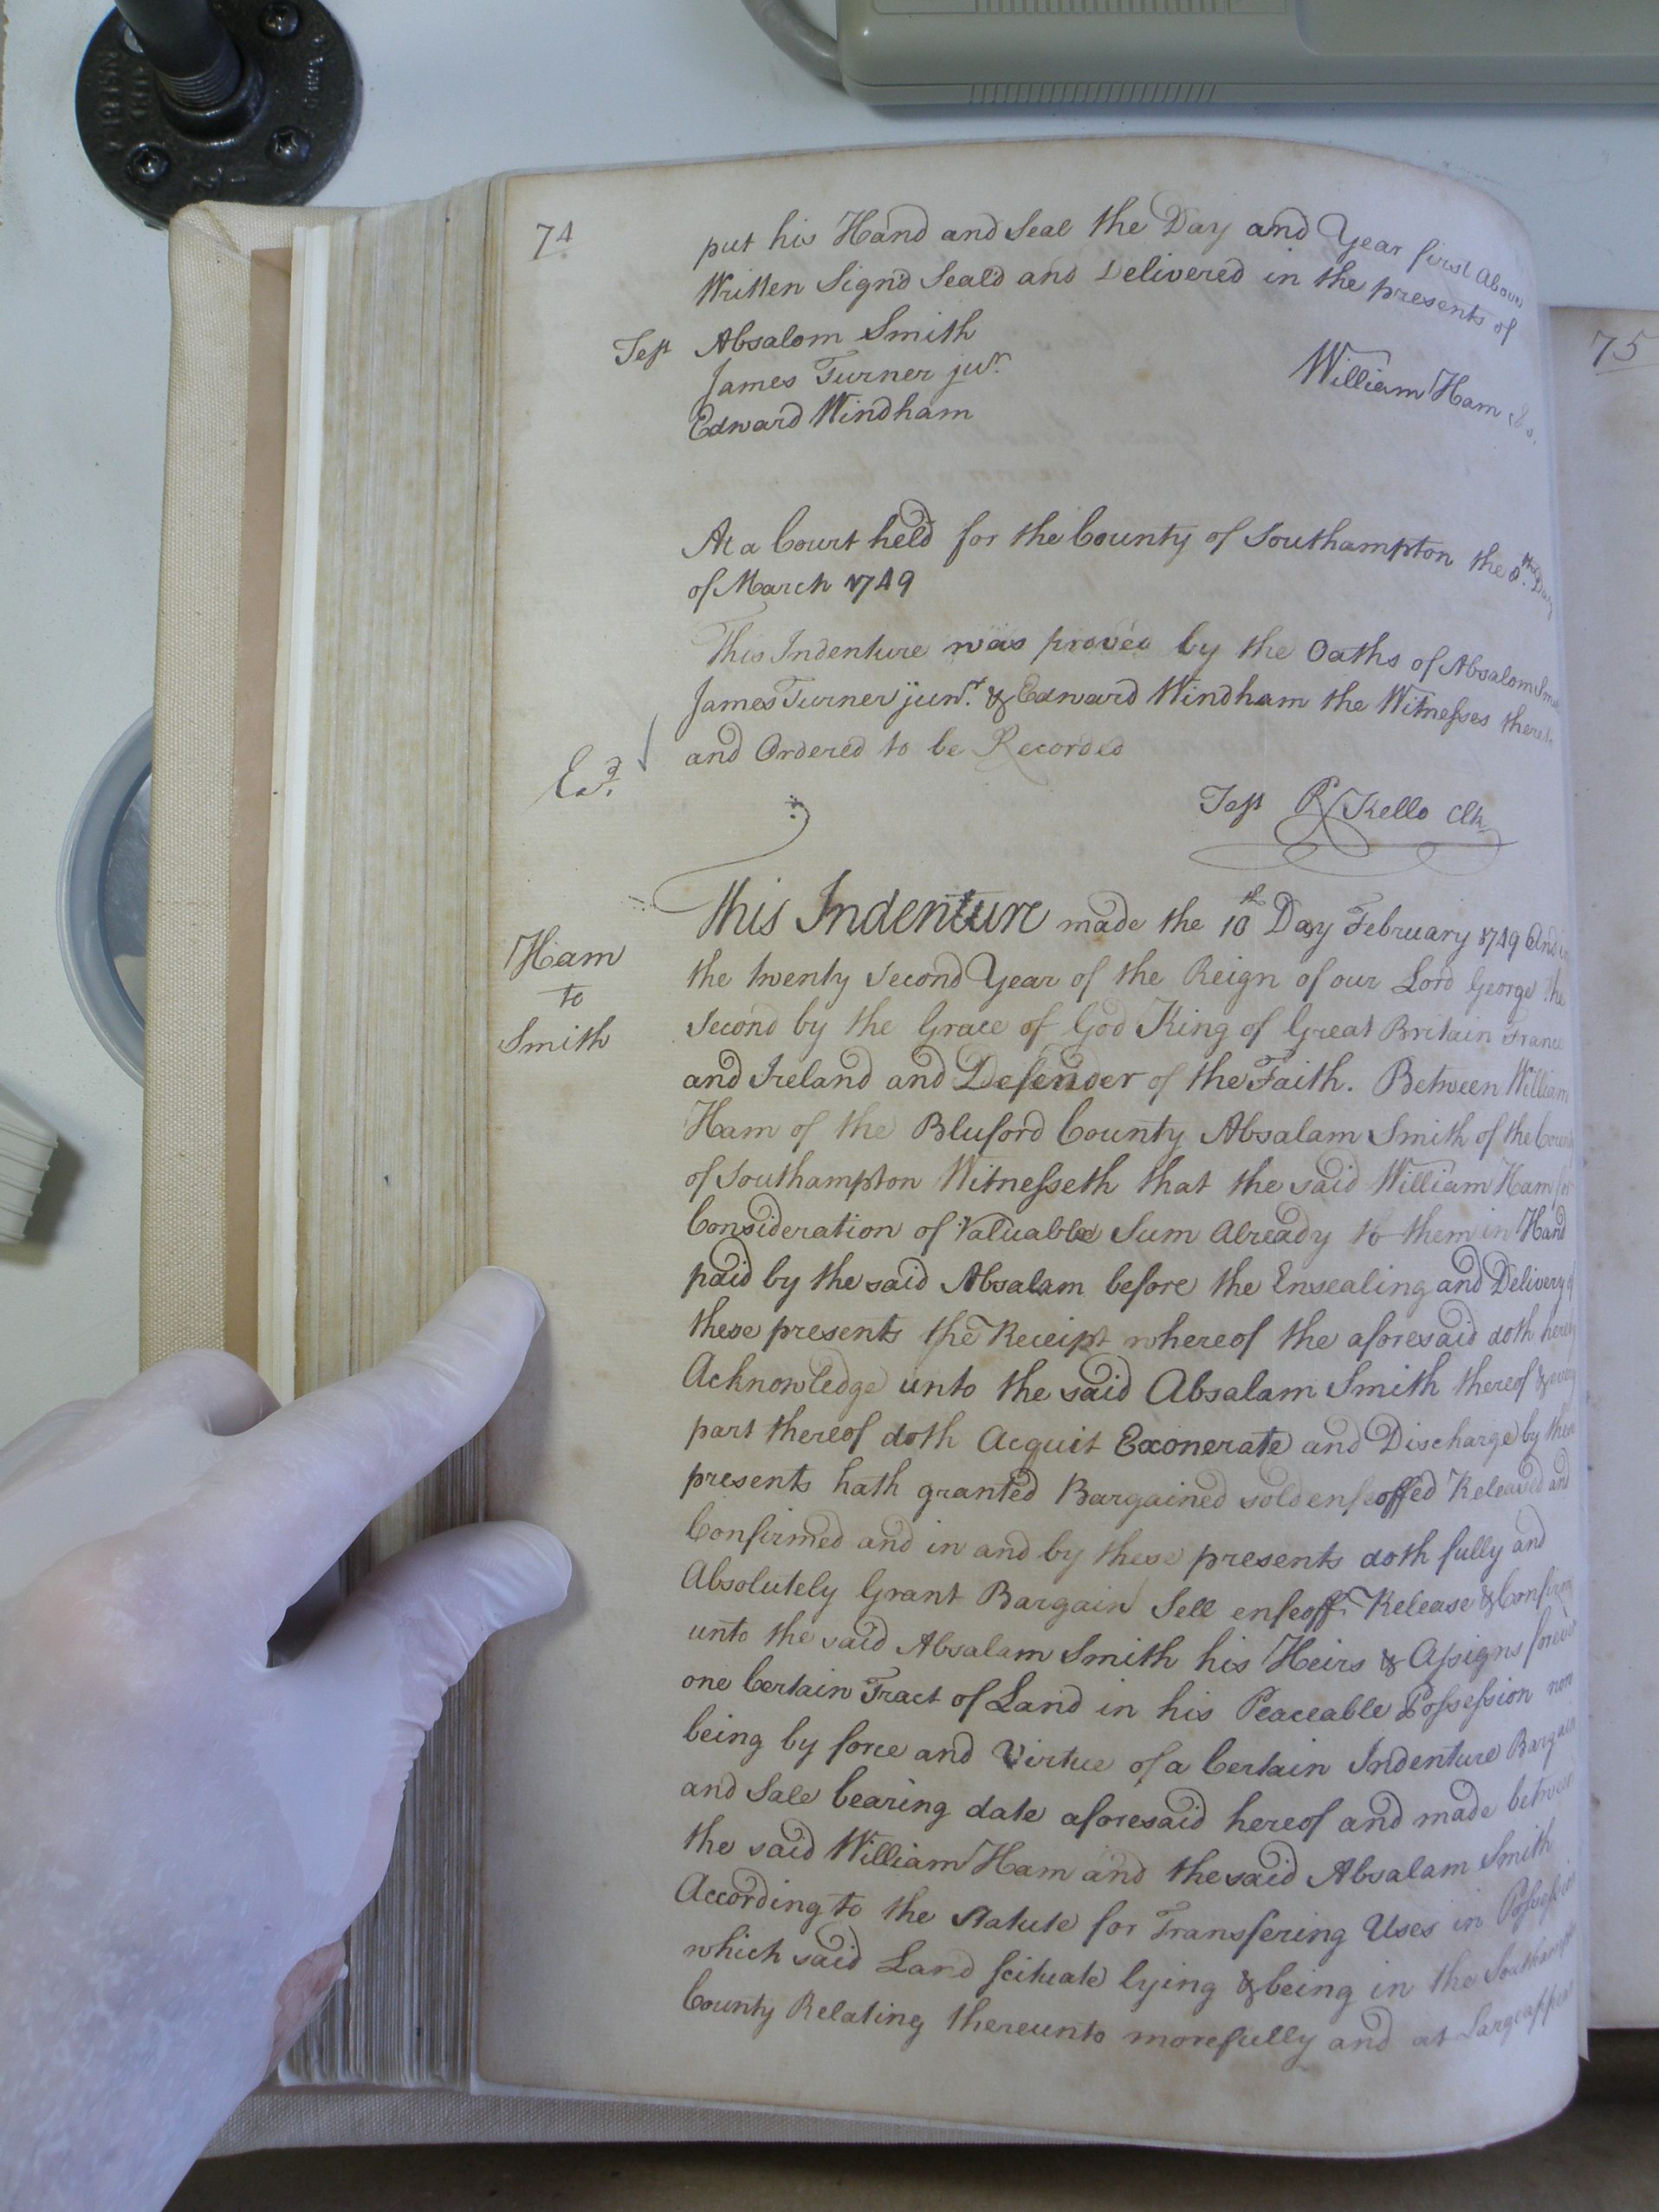 74
put his Hand and Seal the Day and Year first Above
Written Signd Seald and Delivered in the presents of
Test Absalom Smith
James Turner jur.
William Ham
Edward Windham
75
At a Court held for the County of Southampton the 8th. Day
of March 1749
This Indenture was proved by the Oaths of Absalom
James Turner junr. & Edward Windham the Witnesses thereto
and Ordered to be Recorded
Exd.
Test R Kello Clk
Ham
to
Smith
This Indenture made the 10th Day February 1749 And in
the twenty Second Year of the Reign of our Lord George the
Second by the Grace of God King of Great Britain France
and Ireland and Defender of the Faith. Between William
Ham of the Bluford County Absalam Smith of the County
of Southampton Witnesseth that the said William Ham for
Consideration of Valuable Sum Already to them in Hand
paid by the said Absalam before the Ensealing and Delivery of
these presents the Receipt whereof the aforesaid doth hereby
Acknowledge unto the said Absalam Smith thereof & every
part thereof doth Acquit Exonerate and Discharge by these
presents hath granted Bargained sold enfeoffed Released and
Confirmed and in and by these presents doth fully and
Absolutely Grant Bargain Sell enfeoff Release & Confirm
unto the said Absalam Smith his Heirs & Assigns forever
one Certain Tract of Land in his Peaceable Possession now
being by force and Virtue of a Certain Indenture Bargain
and Sale bearing date aforesaid hereof and made between
the said William Ham and the said Absalam Smith
According to the Statute for Transfering Uses in Possession
which said Land scituate lying & being in the Southampton
County Relating thereunto morefully and at Large appear